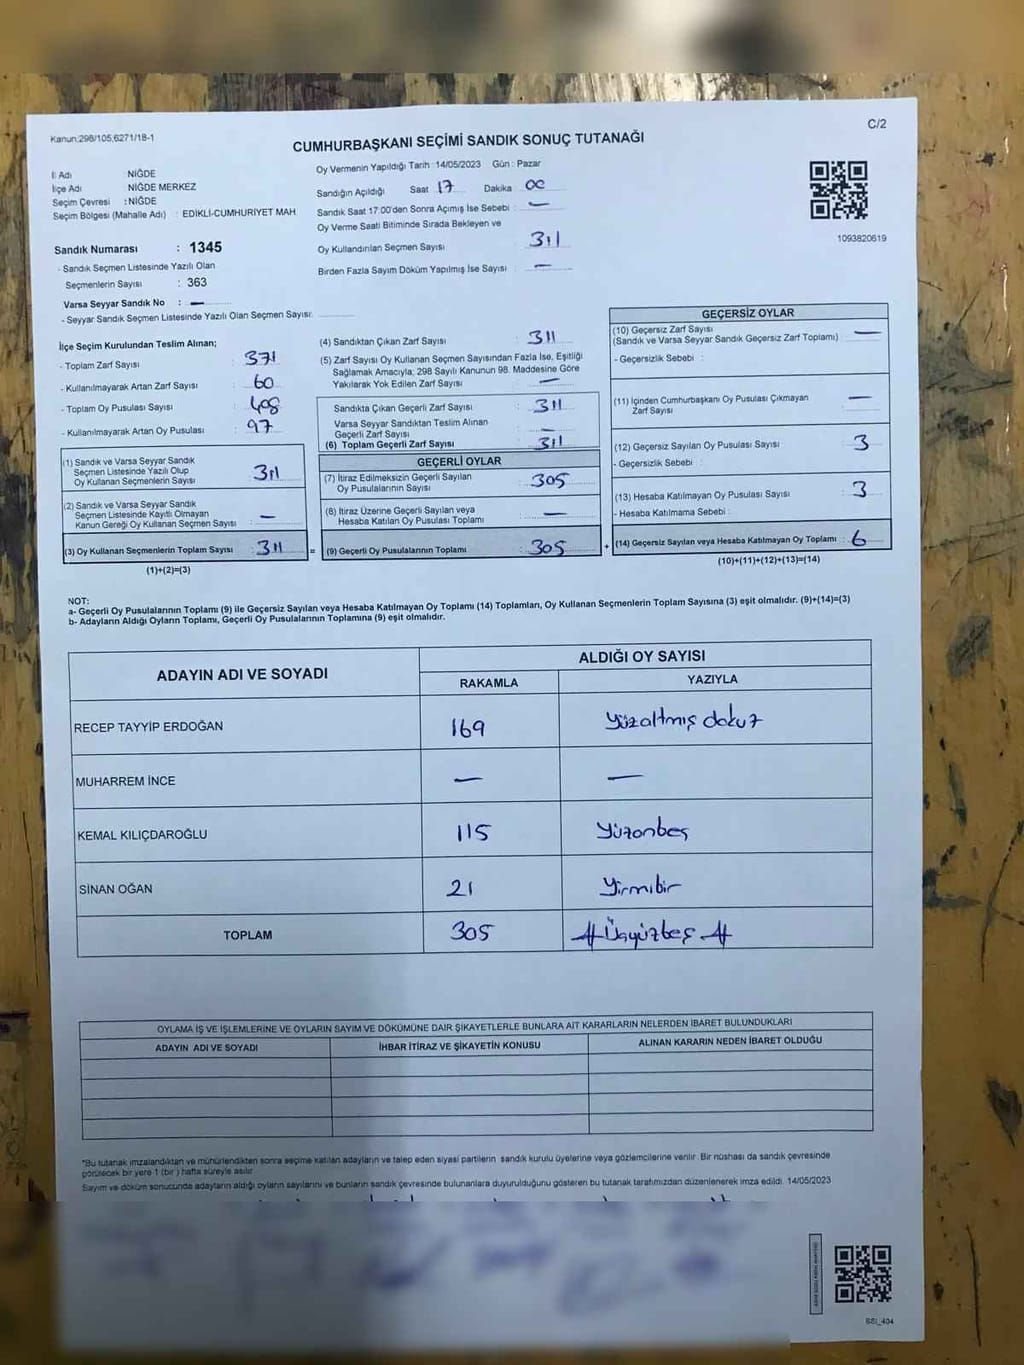 Kanun:298/105,6271/18-1
C/2
CUMHURBAŞKANI SEÇİMİ SANDIK SONUÇ TUTANAĞI
İl Adı NİĞDE
İlçe Adı NİĞDE MERKEZ
Seçim Çevresi : NİĞDE
Seçim Bölgesi (Mahalle Adı) : EDİKLİ-CUMHURİYET MAH
Sandık Numarası : 1345
- Sandık Seçmen Listesinde Yazılı Olan
Seçmenlerin Sayısı : 363
Varsa Seyyar Sandık No : —
- Seyyar Sandık Seçmen Listesinde Yazılı Olan Seçmen Sayısı:
Oy Vermenin Yapıldığı Tarih : 14/05/2023 Gün : Pazar
Sandığın Açıldığı Saat 17 Dakika 00
Sandık Saat 17:00'den Sonra Açımış İse Sebebi : —
Oy Verme Saati Bitiminde Sırada Bekleyen ve
Oy Kullandırılan Seçmen Sayısı : 311
Birden Fazla Sayım Döküm Yapılmış İse Sayısı : —
1093820619
İlçe Seçim Kurulundan Teslim Alınan;
- Toplam Zarf Sayısı : 371
- Kullanılmayarak Artan Zarf Sayısı : 60
- Toplam Oy Pusulası Sayısı : 408
- Kullanılmayarak Artan Oy Pusulası : 97
(1) Sandık ve Varsa Seyyar Sandık
Seçmen Listesinde Yazılı Olup
Oy Kullanan Seçmenlerin Sayısı : 311
(2) Sandık ve Varsa Seyyar Sandık
Seçmen Listesinde Kayıtlı Olmayan
Kanun Gereği Oy Kullanan Seçmen Sayısı : —
(3) Oy Kullanan Seçmenlerin Toplam Sayısı : 311
(1)+(2)=(3)
(4) Sandıktan Çıkan Zarf Sayısı : 311
(5) Zarf Sayısı Oy Kullanan Seçmen Sayısından Fazla İse, Eşitliği
Sağlamak Amacıyla; 298 Sayılı Kanunun 98. Maddesine Göre
Yakılarak Yok Edilen Zarf Sayısı : —
Sandıkta Çıkan Geçerli Zarf Sayısı : 311
Varsa Seyyar Sandıktan Teslim Alınan
Geçerli Zarf Sayısı : —
(6) Toplam Geçerli Zarf Sayısı : 311
GEÇERLİ OYLAR
(7) İtiraz Edilmeksizin Geçerli Sayılan
Oy Pusulalarının Sayısı : 305
(8) İtiraz Üzerine Geçerli Sayılan veya
Hesaba Katılan Oy Pusulası Toplamı : —
= (9) Geçerli Oy Pusulalarının Toplamı : 305
GEÇERSİZ OYLAR
(10) Geçersiz Zarf Sayısı : —
(Sandık ve Varsa Seyyar Sandık Geçersiz Zarf Toplamı)
- Geçersizlik Sebebi :
(11) İçinden Cumhurbaşkanı Oy Pusulası Çıkmayan
Zarf Sayısı : —
(12) Geçersiz Sayılan Oy Pusulası Sayısı : 3
- Geçersizlik Sebebi :
(13) Hesaba Katılmayan Oy Pusulası Sayısı : 3
- Hesaba Katılmama Sebebi :
+ (14) Geçersiz Sayılan veya Hesaba Katılmayan Oy Toplamı : 6
(10)+(11)+(12)+(13)=(14)
NOT:
a- Geçerli Oy Pusulalarının Toplamı (9) ile Geçersiz Sayılan veya Hesaba Katılmayan Oy Toplamı (14) Toplamları, Oy Kullanan Seçmenlerin Toplam Sayısına (3) eşit olmalıdır. (9)+(14)=(3)
b- Adayların Aldığı Oyların Toplamı, Geçerli Oy Pusulalarının Toplamına (9) eşit olmalıdır.
ADAYIN ADI VE SOYADI ALDIĞI OY SAYISI
RAKAMLA YAZIYLA
RECEP TAYYİP ERDOĞAN 169 Yüzaltmış dokuz
MUHARREM İNCE — —
KEMAL KILIÇDAROĞLU 115 Yüzonbeş
SİNAN OĞAN 21 Yirmibir
TOPLAM 305 #Üçyüzbeş#
OYLAMA İŞ VE İŞLEMLERİNE VE OYLARIN SAYIM VE DÖKÜMÜNE DAİR ŞİKAYETLERLE BUNLARA AİT KARARLARIN NELERDEN İBARET BULUNDUKLARI
ADAYIN ADI VE SOYADI İHBAR İTİRAZ VE ŞİKAYETİN KONUSU ALINAN KARARIN NEDEN İBARET OLDUĞU
*Bu tutanak imzalandıktan ve mühürlendikten sonra seçime katılan adayların ve talep eden siyasi partilerin sandık kurulu üyelerine veya gözlemcilerine verilir. Bir nüshası da sandık çevresinde
görülecek bir yere 1 (bir) hafta süreyle asılır.
Sayım ve döküm sonucunda adayların aldığı oyların sayılarını ve bunların sandık çevresinde bulunanlara duyurulduğunu gösteren bu tutanak tarafımızdan düzenlenerek imza edildi. 14/05/2023
SSI_404